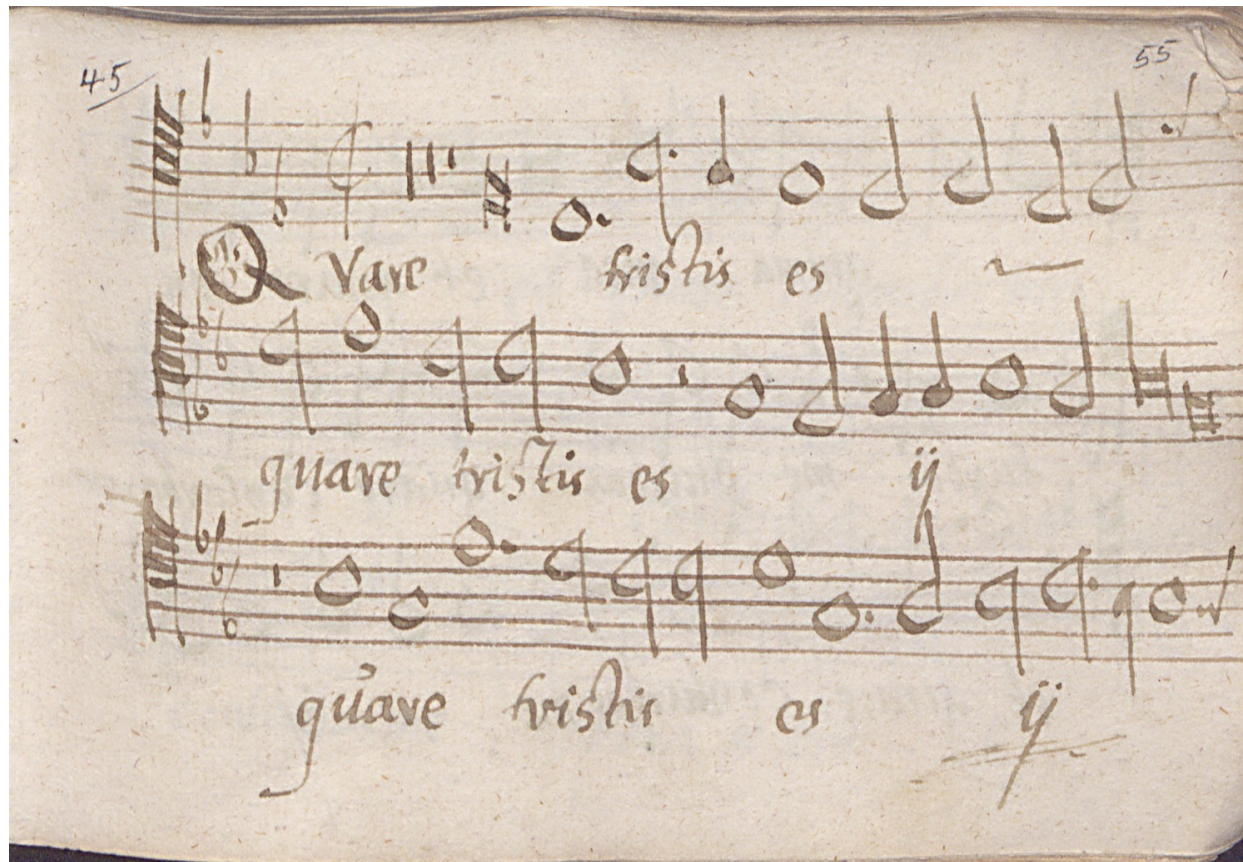 45 55
Quare tristis es
quare tristis es ij
quare tristis es ij